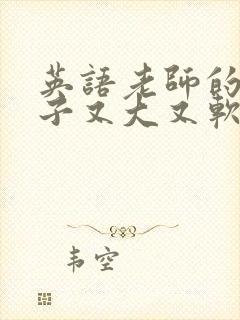 英語老師的
子又大又軟
韦空